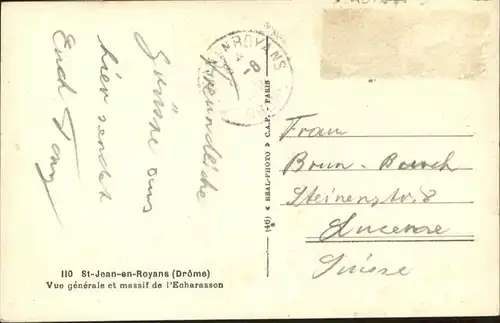 Freundliche
Grüsse aus
hier sendet
Euch Tony
110 St-Jean-en-Royans (Drôme)
Vue générale et massif de l'Echarasson
(46) « REAL-PHOTO » C.A.P. - PARIS
EN ROYANS
Frau
Brun-Bosch
Steinenstr. 8
Lucerne
Suisse